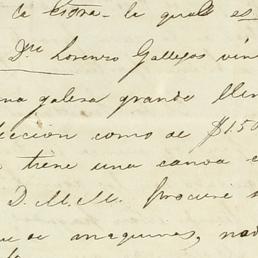 de tierra - la cual es
Dn Lorenzo Gallegos vin
una galera grande llen
eccion como de $150
tiene una canoa
D. M. M. procure s
que de maquinas, nad